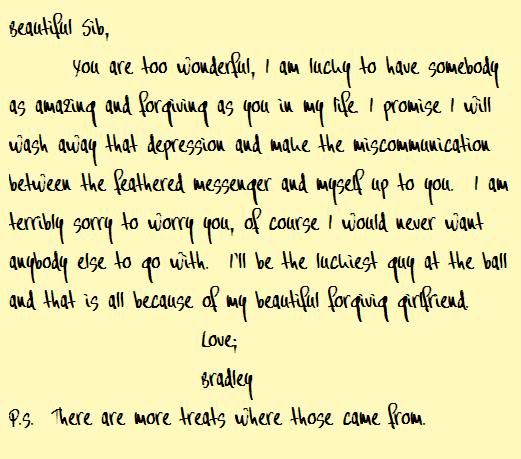 Beautiful Sib,
You are too wonderful, I am lucky to have somebody
as amazing and forgiving as you in my life. I promise I will
wash away that depression and make the miscommunication
between the feathered messenger and myself up to you. I am
terribly sorry to worry you, of course I would never want
anybody else to go with. I'll be the luckiest guy at the ball
and that is all because of my beautiful forgivig girlfriend.
Love;
Bradley
P.s. There are more treats where those came from.